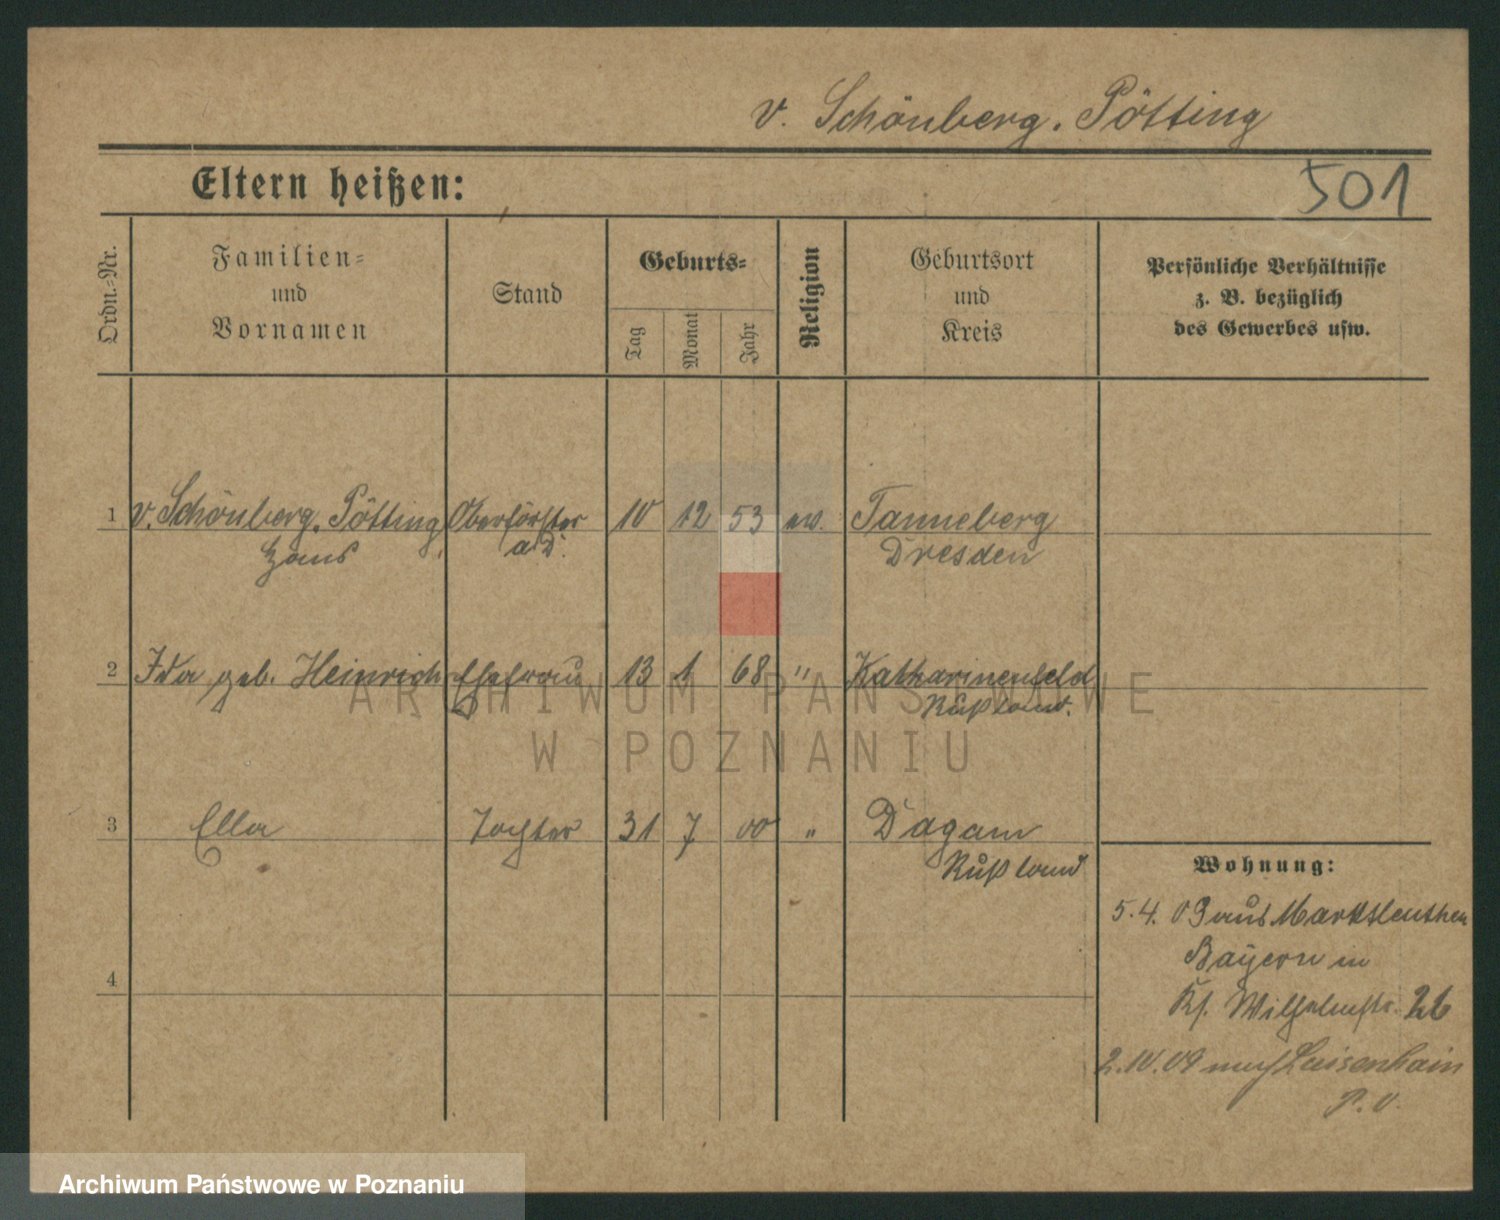 v. Schönberg. Pötting
Eltern heißen:
501
Ordn.-Nr.
Familien-
und
Vornamen
Stand
Geburts-
Tag
Monat
Jahr
Religion
Geburtsort
und
Kreis
Persönliche Verhältnisse
z. B. bezüglich
des Gewerbes usw.
1 v. Schönberg. Pötting Oberförster 10 12 53 ev. Tanneberg
Hans a.D. Dresden
2 Ida geb. Heinrich Ehefrau 13 1 68 " Katharinenfeld
Rußland.
ARCHIWUM PAŃSTWOWE
W POZNANIU
3 Ella Tochter 31 7 00 " Dagam
Rußland
Wohnung:
5.4.09 aus Marktleuthen
Bayern in
4
Wilhelmstr. 26
2.10.09 nach Luisenhain
P. O.
Archiwum Państwowe w Poznaniu